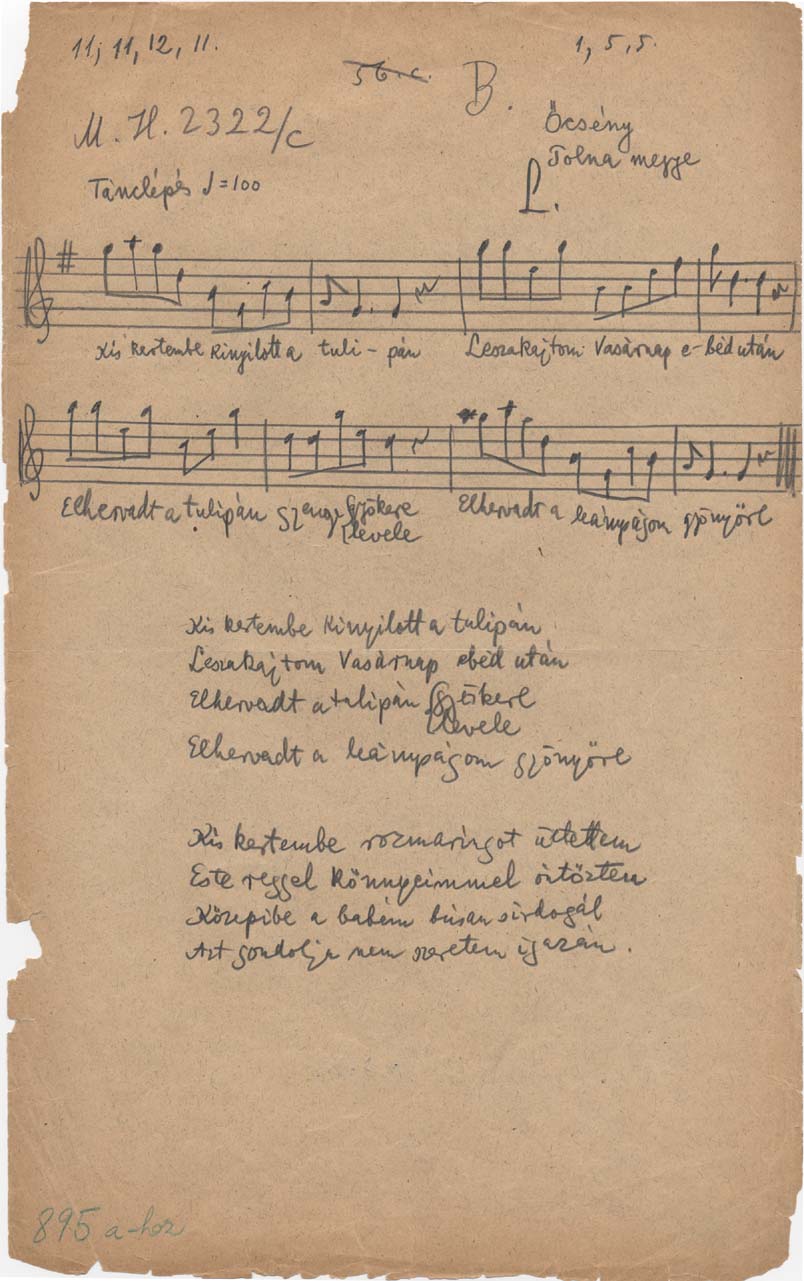 11; 11, 12, 11.
1, 5, 5.
56. c.
B.
M. H. 2322/c
Őcsény
Tolna megye
Tánclépés ♩=100
L.
Kis kertembe kinyilott a tuli - pán Leszakajtom Vasárnap e-béd után
Elhervadt a tulipán gyökere Elhervadt a leánypágom gyönyöre
levele
Kis kertembe kinyilott a tulipán
Leszakajtom Vasárnap ebéd után
Elhervadt a tulipán gyökere
levele
Elhervadt a leánypágom gyönyöre
Kis kertembe rozmaringot ültettem
Este reggel könnyeimmel öntöztem
Közepibe a babám búsan sirdogál
Azt gondolja nem szeretem igazán.
895 a-hoz